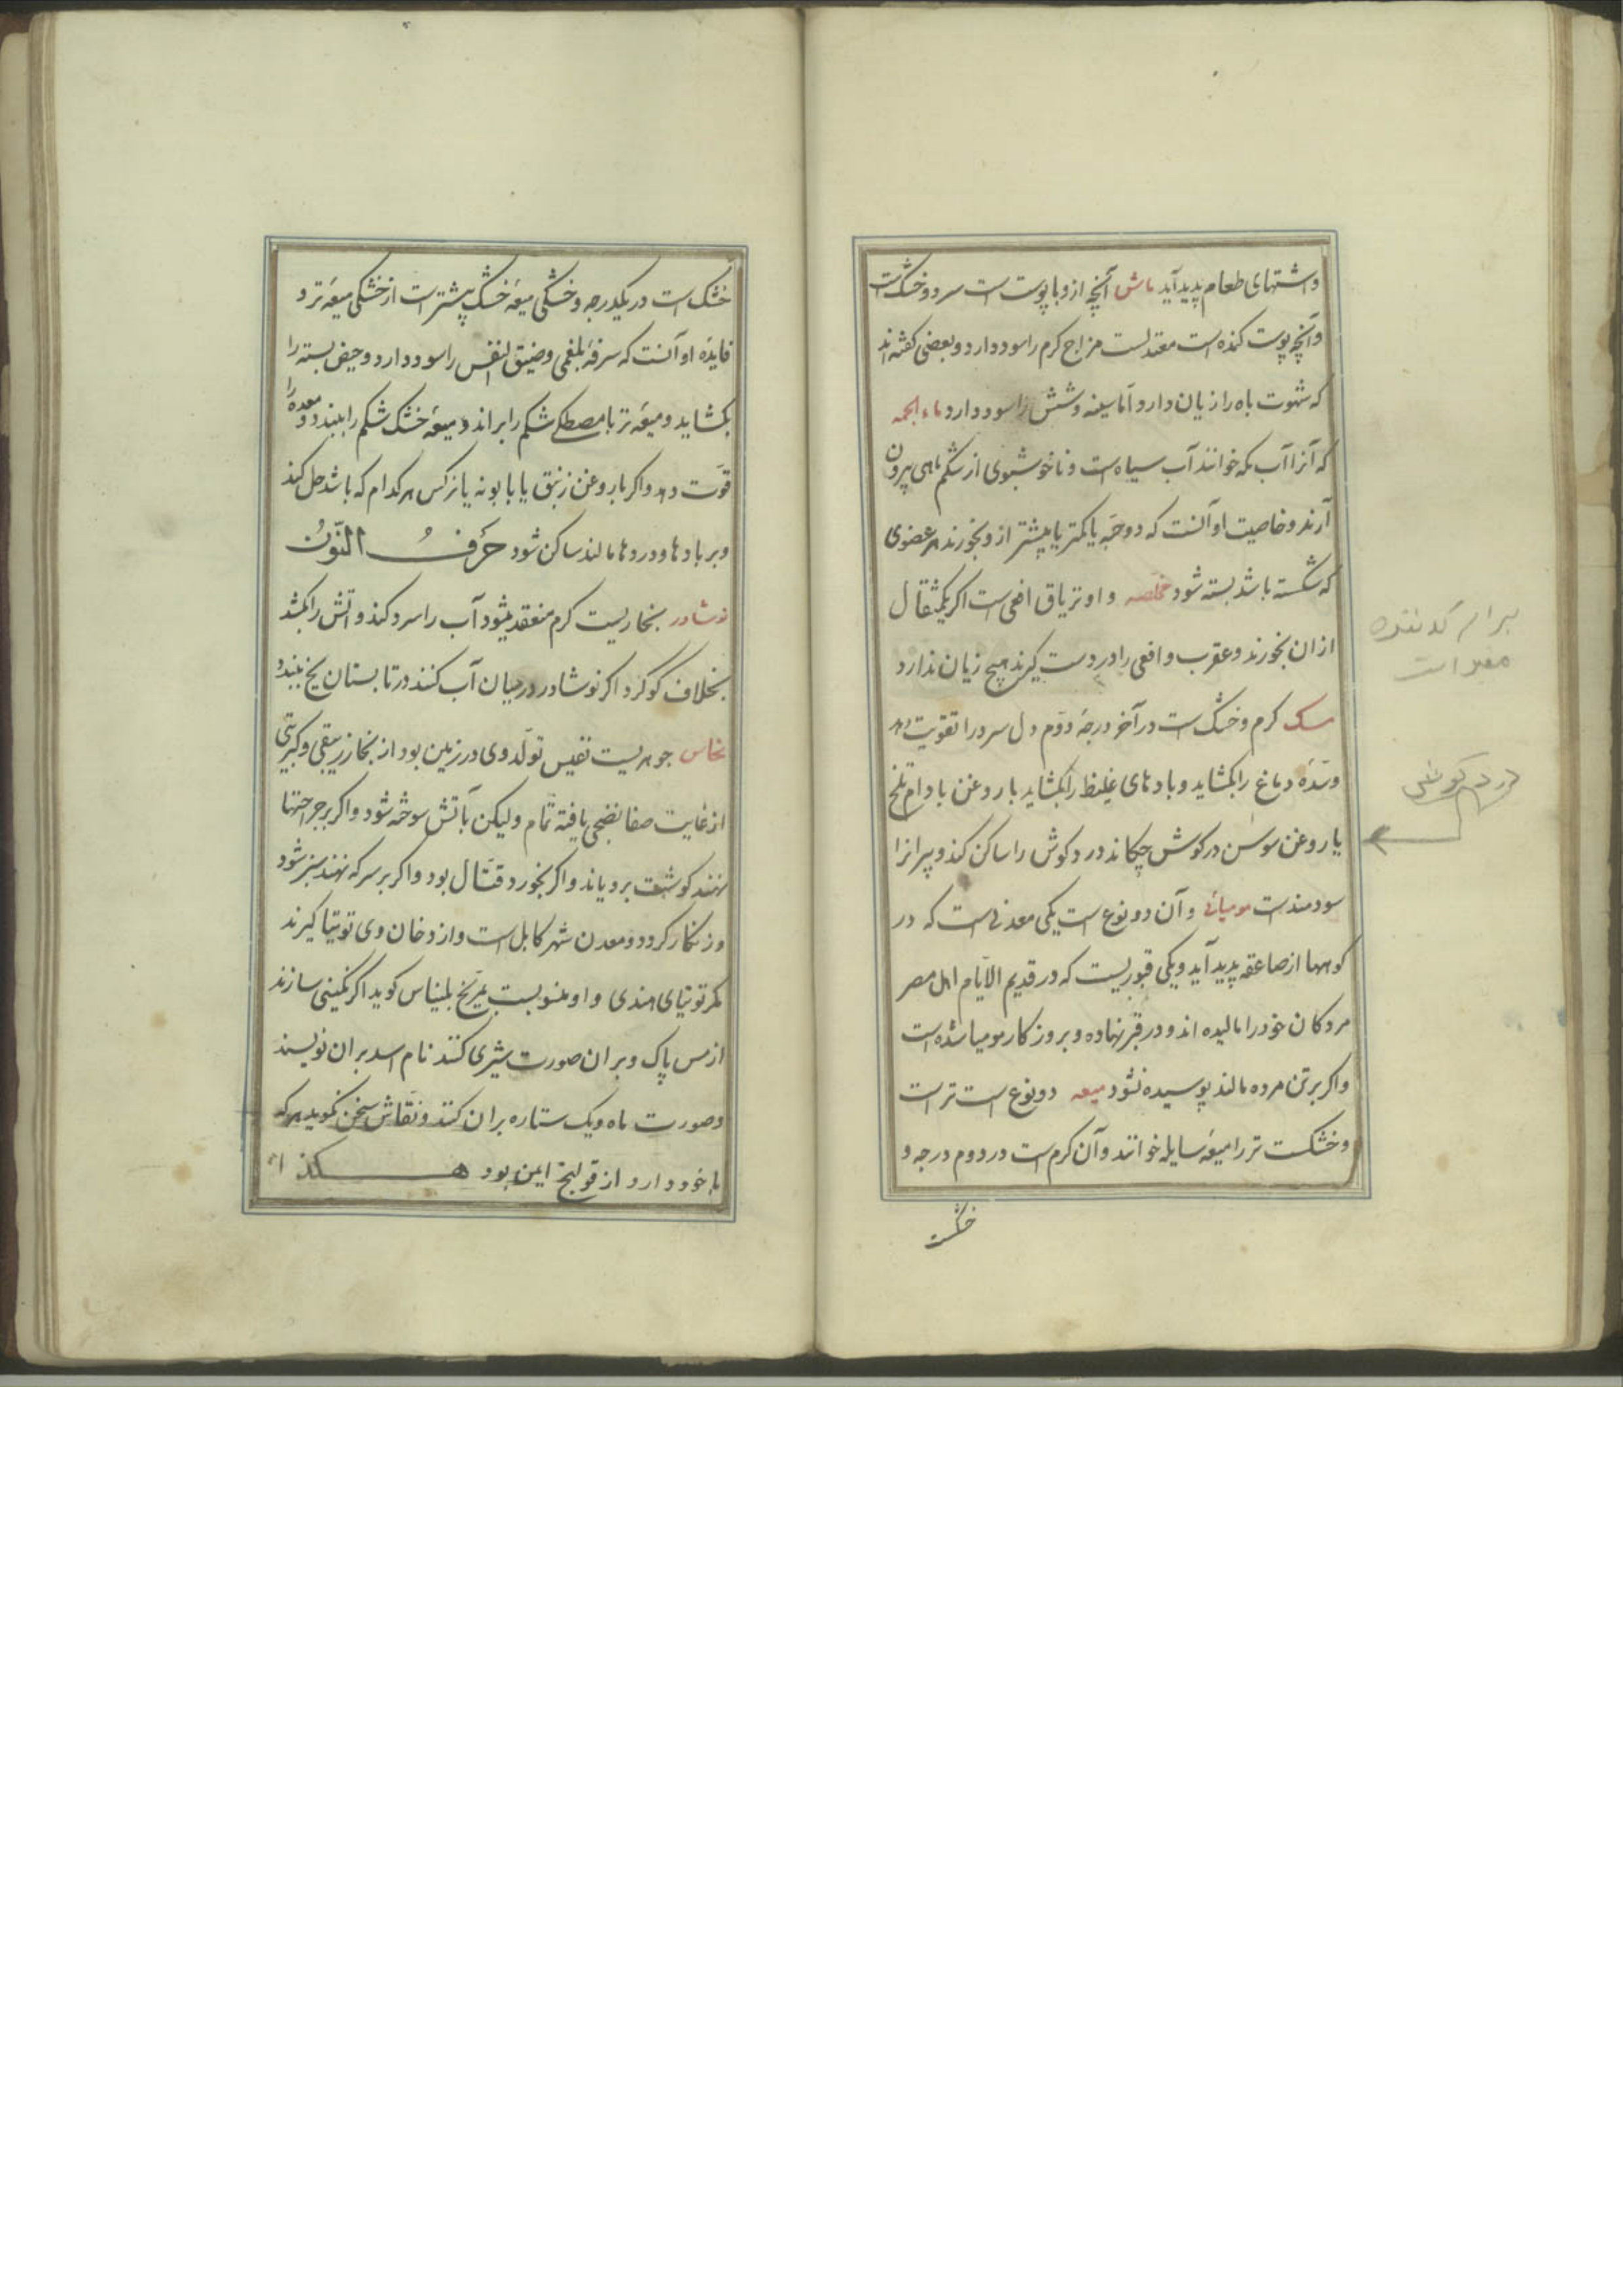 واشتهای طعام پدید آید ماش آنچه ازو با پوست است سرد و خشک است
وآنچه پوست کنده است معتدلست مزاج کرم را سود دارد و بعضی کفته اند
که شهوت باه را زیان دارد اما سینه و شش را سود دارد ماء الجمه
که آنرا آب مکه خوانند آب سیاه است و ناخوشبوی از شکم ماهی بیرون
آرند و خاصیت او آنست که دو حبه یا کمتر یا بیشتر ازو بخورند هر عضوی
که شکسته باشد بسته شود مخلصه و او تریاق افعی است اکر یکمثقال
ازان بخورند و عقرب و افعی را در دست کیرند هیچ زیان ندارد
مسک کرم و خشک است در آخر درجهٔ دوم دل سرد را تقویت دهد
وسدهٔ دماغ را بکشاید و بادهای غلیظ را بکشاید با روغن بادام تلخ
یا روغن سوسن در کوش چکانند درد کوش را ساکن کند و پیرانرا
سودمند است مومیائی و آن دو نوع است یکی معدنی است که در
کوهها از صاعقه پدید آید و یکی قبوریست که در قدیم الایام اهل مصر
مردکان خود را مالیده اند و در قبر نهاده و بروزکار مومیا شده است
واکر بر تن مرده مالند پوسیده نشود میعه دو نوع است تر است
وخشکست تر را میعهٔ سایله خوانند و آن کرم است در دوم درجه و
خشکست
مفید است
درد کوش
خشک است در یکدرجه و خشکی میعهٔ خشک پیشتر است از خشکی میعهٔ تر و
فایدهٔ او آنست که سرفهٔ بلغمی و ضیق النفس را سود دارد و حیض بسته را
بکشاید و میعهٔ تر با مصطکی شکم را براند و میعهٔ خشک شکم را ببندد و معده را
قوت دهد و اکر با روغن زنبق یا بابونه یا نرکس هر کدام که باشد حل کند
و بر بادها و دردها مالند ساکن شود حرف النون
نوشادر بخاریست کرم منعقد میشود آب را سرد کند و آتش را بکشد
بخلاف کوکرد اکر نوشادر در میان آب کنند در تابستان یخ ببندد
نحاس جوهریست نفیس تولد وی در زمین بود از بخار زیبقی و کبریتی
از غایت صفا نضجی یافته تمام ولیکن باتش سوخته شود و اکر بر جراحتها
نهند کوشت برویاند و اکر بخورد قتال بود و اکر بر سرکه نهند سبز شود
و زنکار کردد و معدن شهر کابل است و از دخان وی توتیا کیرند
مکر توتیای هندی و او منسوبست بمریخ بلیناس کوید اکر نکینی سازند
از مس پاک و بران صورت شیری کنند نام اسد بران نویسند
وصورت ماه و یک ستاره بران کنند و نقاش سخن نکوید هر که
با خود دارد از قولنج ایمن بود هکذا